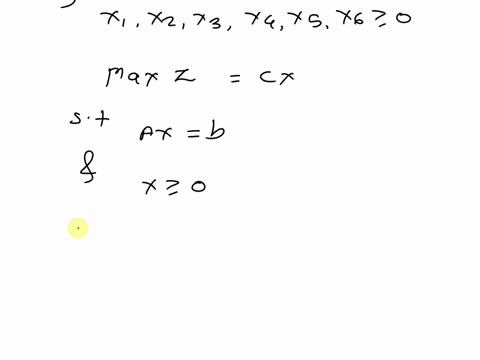 x1, x2, x3, x4, x5, x6 ≥ 0
Max Z = Cx
s.t Ax = b
& x ≥ 0